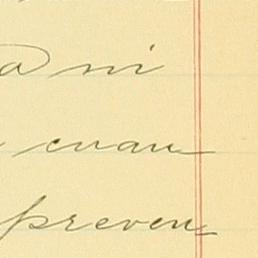 a ni
cuan
preven=